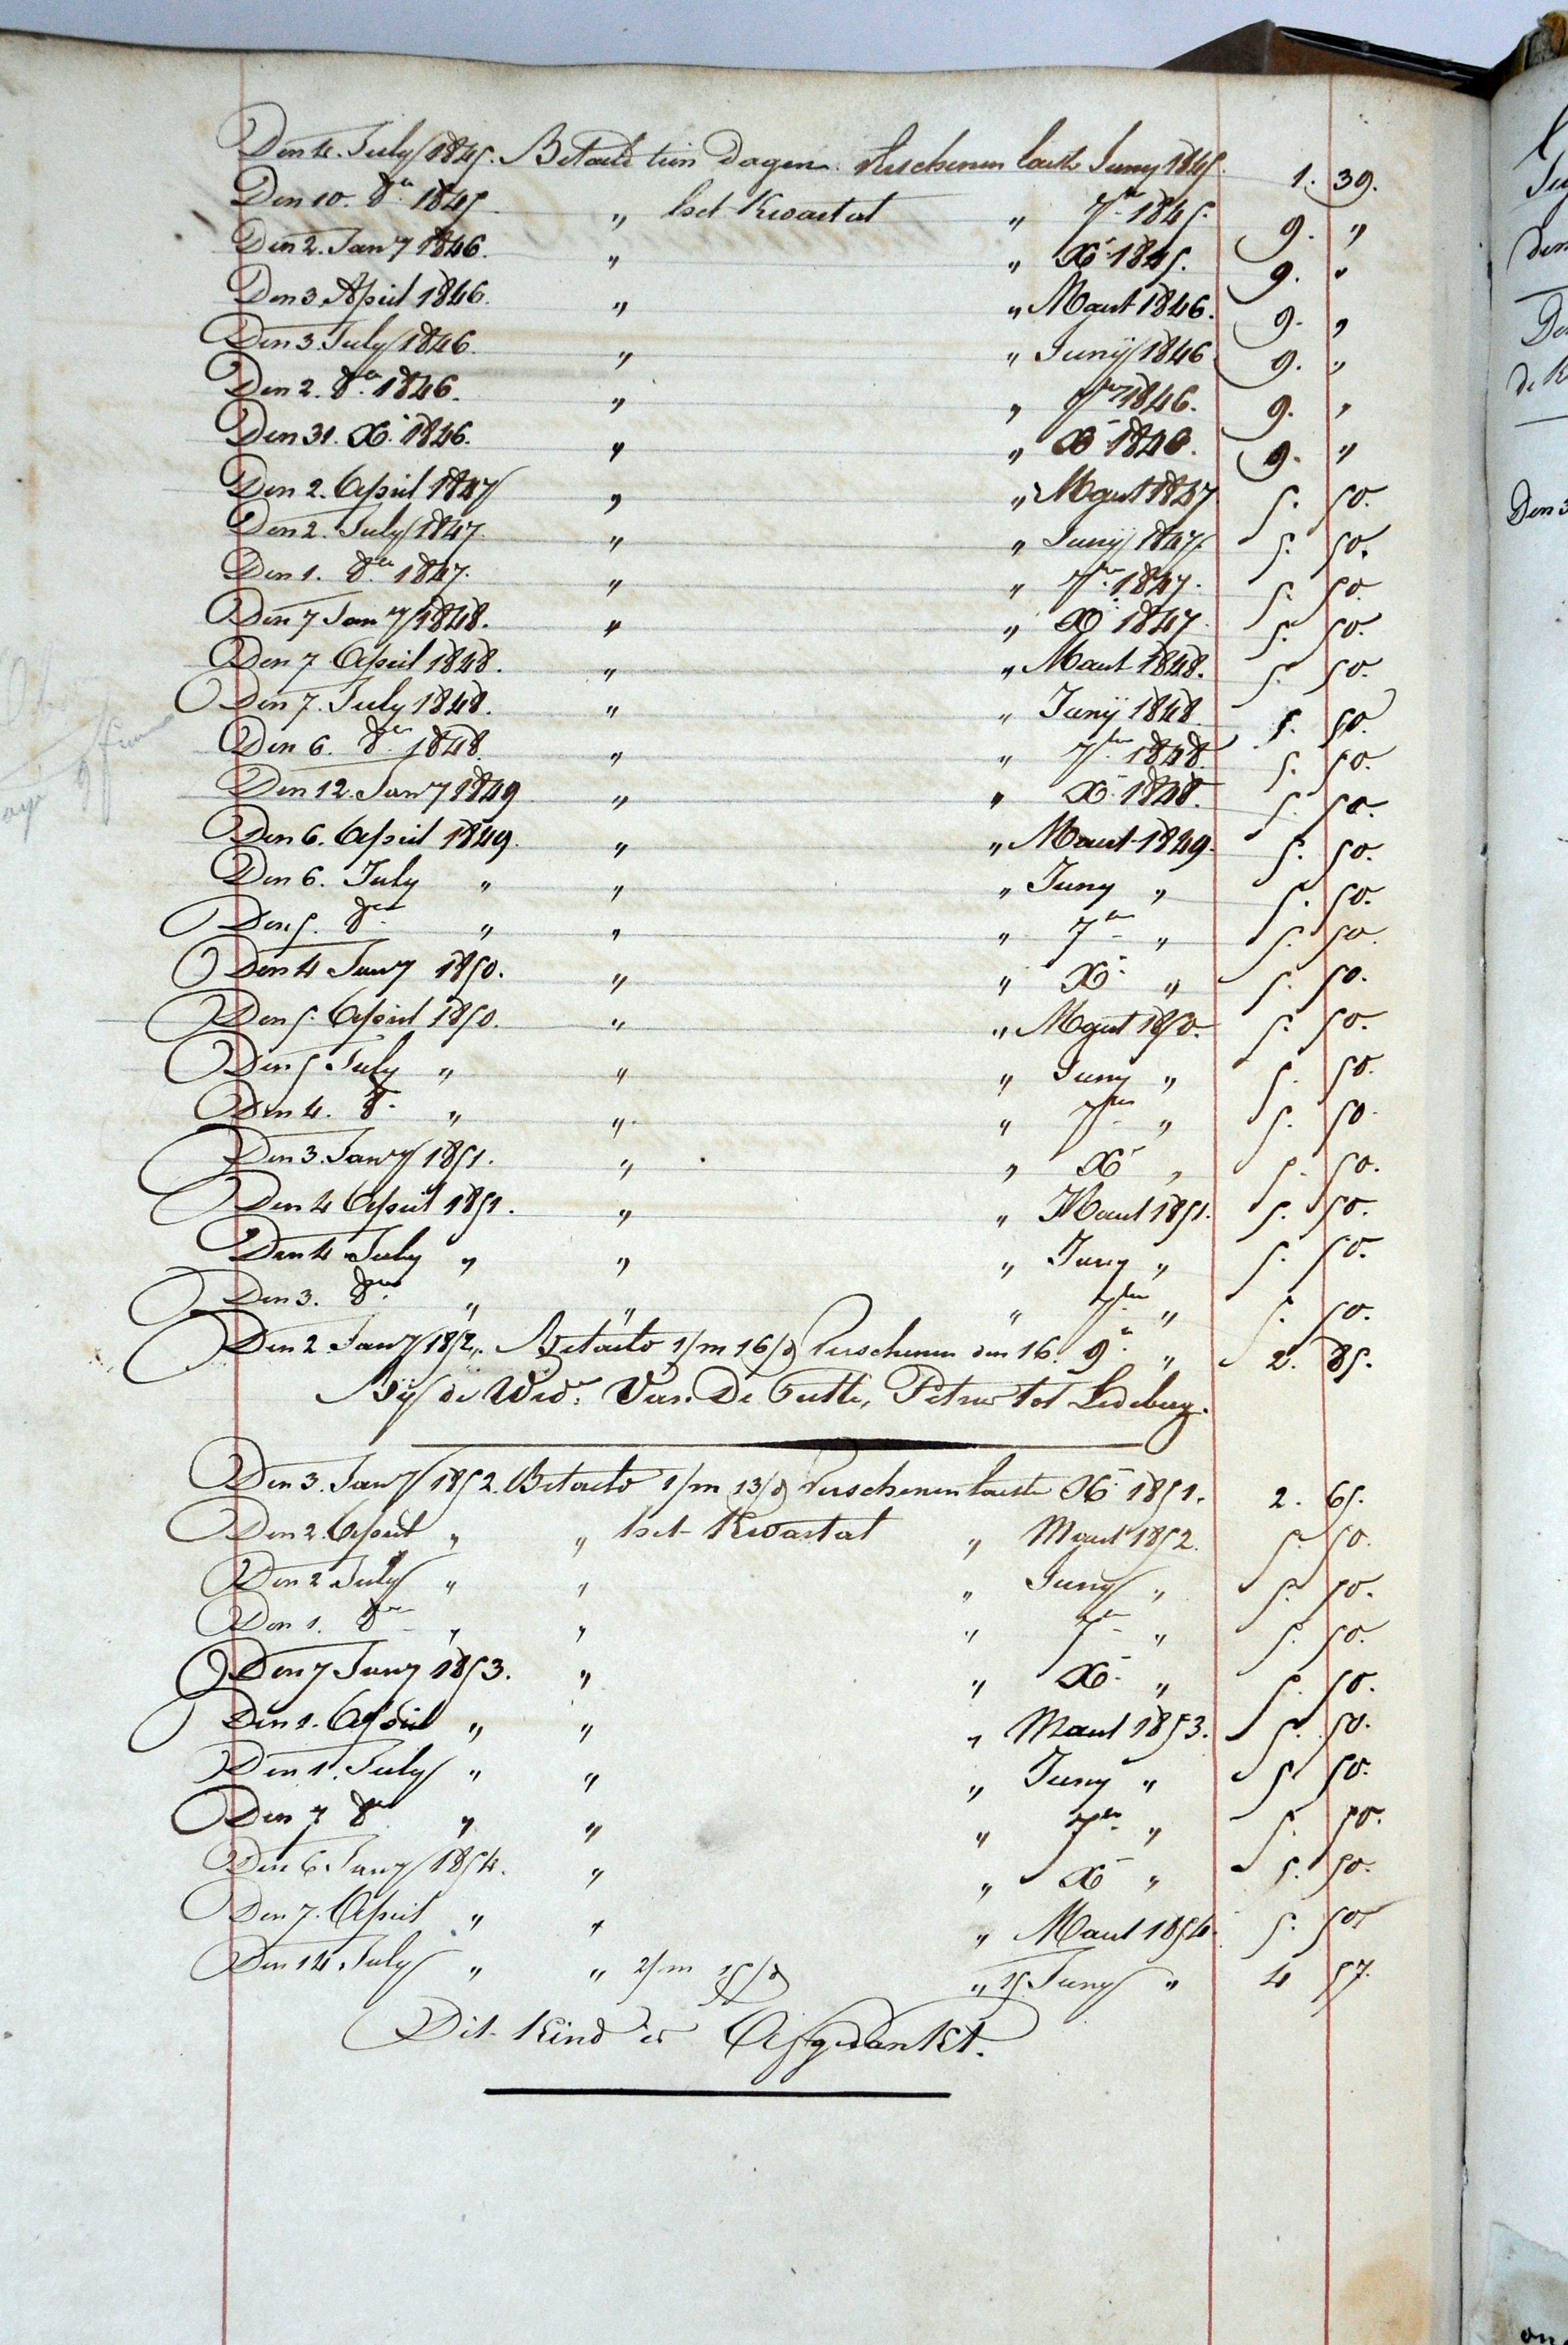 Den 4. July 1845. Betaelt tien dagen. Verschenen laeste Juny 1845. 1. 39.
Den 10. 8er 1845 „ het Kwartal „ 7er 1845. 9. „
Den 2. Jany 1846. „ „ Xr 1845. 9. „
Den 3 April 1846. „ „ Maert 1846. 9. „
Den 3 July 1846. „ „ Junij 1846 9. „
Den 2. 8er 1846. „ „ 7er 1846. 9. „
Den 31. Xr 1846. „ „ Xr 1846. 9. „
Den 2. April 1847 „ „ Maert 1847 5. 50.
Den 2. July 1847. „ „ Junij 1847. 5. 50.
Den 1. 8er 1847. „ „ 7er 1847. 5. 50.
Den 7 Jany 1848. „ „ Xr 1847. 5. 50.
Den 7 April 1848. „ „ Maert 1848. 5. 50.
Den 7. July 1848. „ „ Junij 1848 5. 50.
Den 6. 8er 1848. „ „ 7er 1848. 5. 50.
Den 12. Jany 1849 „ „ Xr 1848. 5. 50.
Den 6. April 1849. „ „ Maert 1849. 5. 50.
Den 6. July „ „ „ Juny „ 5. 50.
Den 5. 8er „ „ „ 7er „ 5. 50.
Den 4 Jany 1850. „ „ Xr „ 5. 50.
Den 5. April 1850. „ „ Maert 1850. 5. 50.
Den 5 July „ „ „ Juny „ 5. 50.
Den 4. 8r „ „ „ 7er „ 5. 50.
Den 3. Jany 1851. „ „ Xr „ 5. 50.
Den 4 April 1851. „ „ Maert 1851. 5. 50.
Den 4 July „ „ „ Juny „ 5. 50.
Den 3. 8er „ „ „ 7er „ 5. 50.
Den 2 Jany 1852. Betaelt 1/m 16/d Verschenen den 16. 9r „ 2. 85.
Bij de Wede Van De Putte, Petrus tot Ledeberg.
Den 3. Jany 1852. Betaelt 1/m 13/d Verschenen laeste Xr 1851. 2. 65.
Den 2. April „ „ het Kwartal „ Maert 1852. 5. 50.
Den 2 July „ „ „ Juny „ 5. 50.
Den 1. 8er „ „ „ 7er „ 5. 50.
Den 7 Jany 1853. „ „ Xr „ 5. 50.
Den 1. April „ „ „ Maert 1853. 5. 50.
Den 1. July „ „ „ Juny „ 5. 50.
Den 7 8er „ „ „ 7er „ 5. 50.
Den 6. Jany 1854. „ „ Xr „ 5. 50.
Den 7. April „ „ „ Maert 1854. 5. 50
Den 14 July „ „ 2/m 15/d „ 15 Juny „ 4 57.
Dit Kind is Afgedankt.